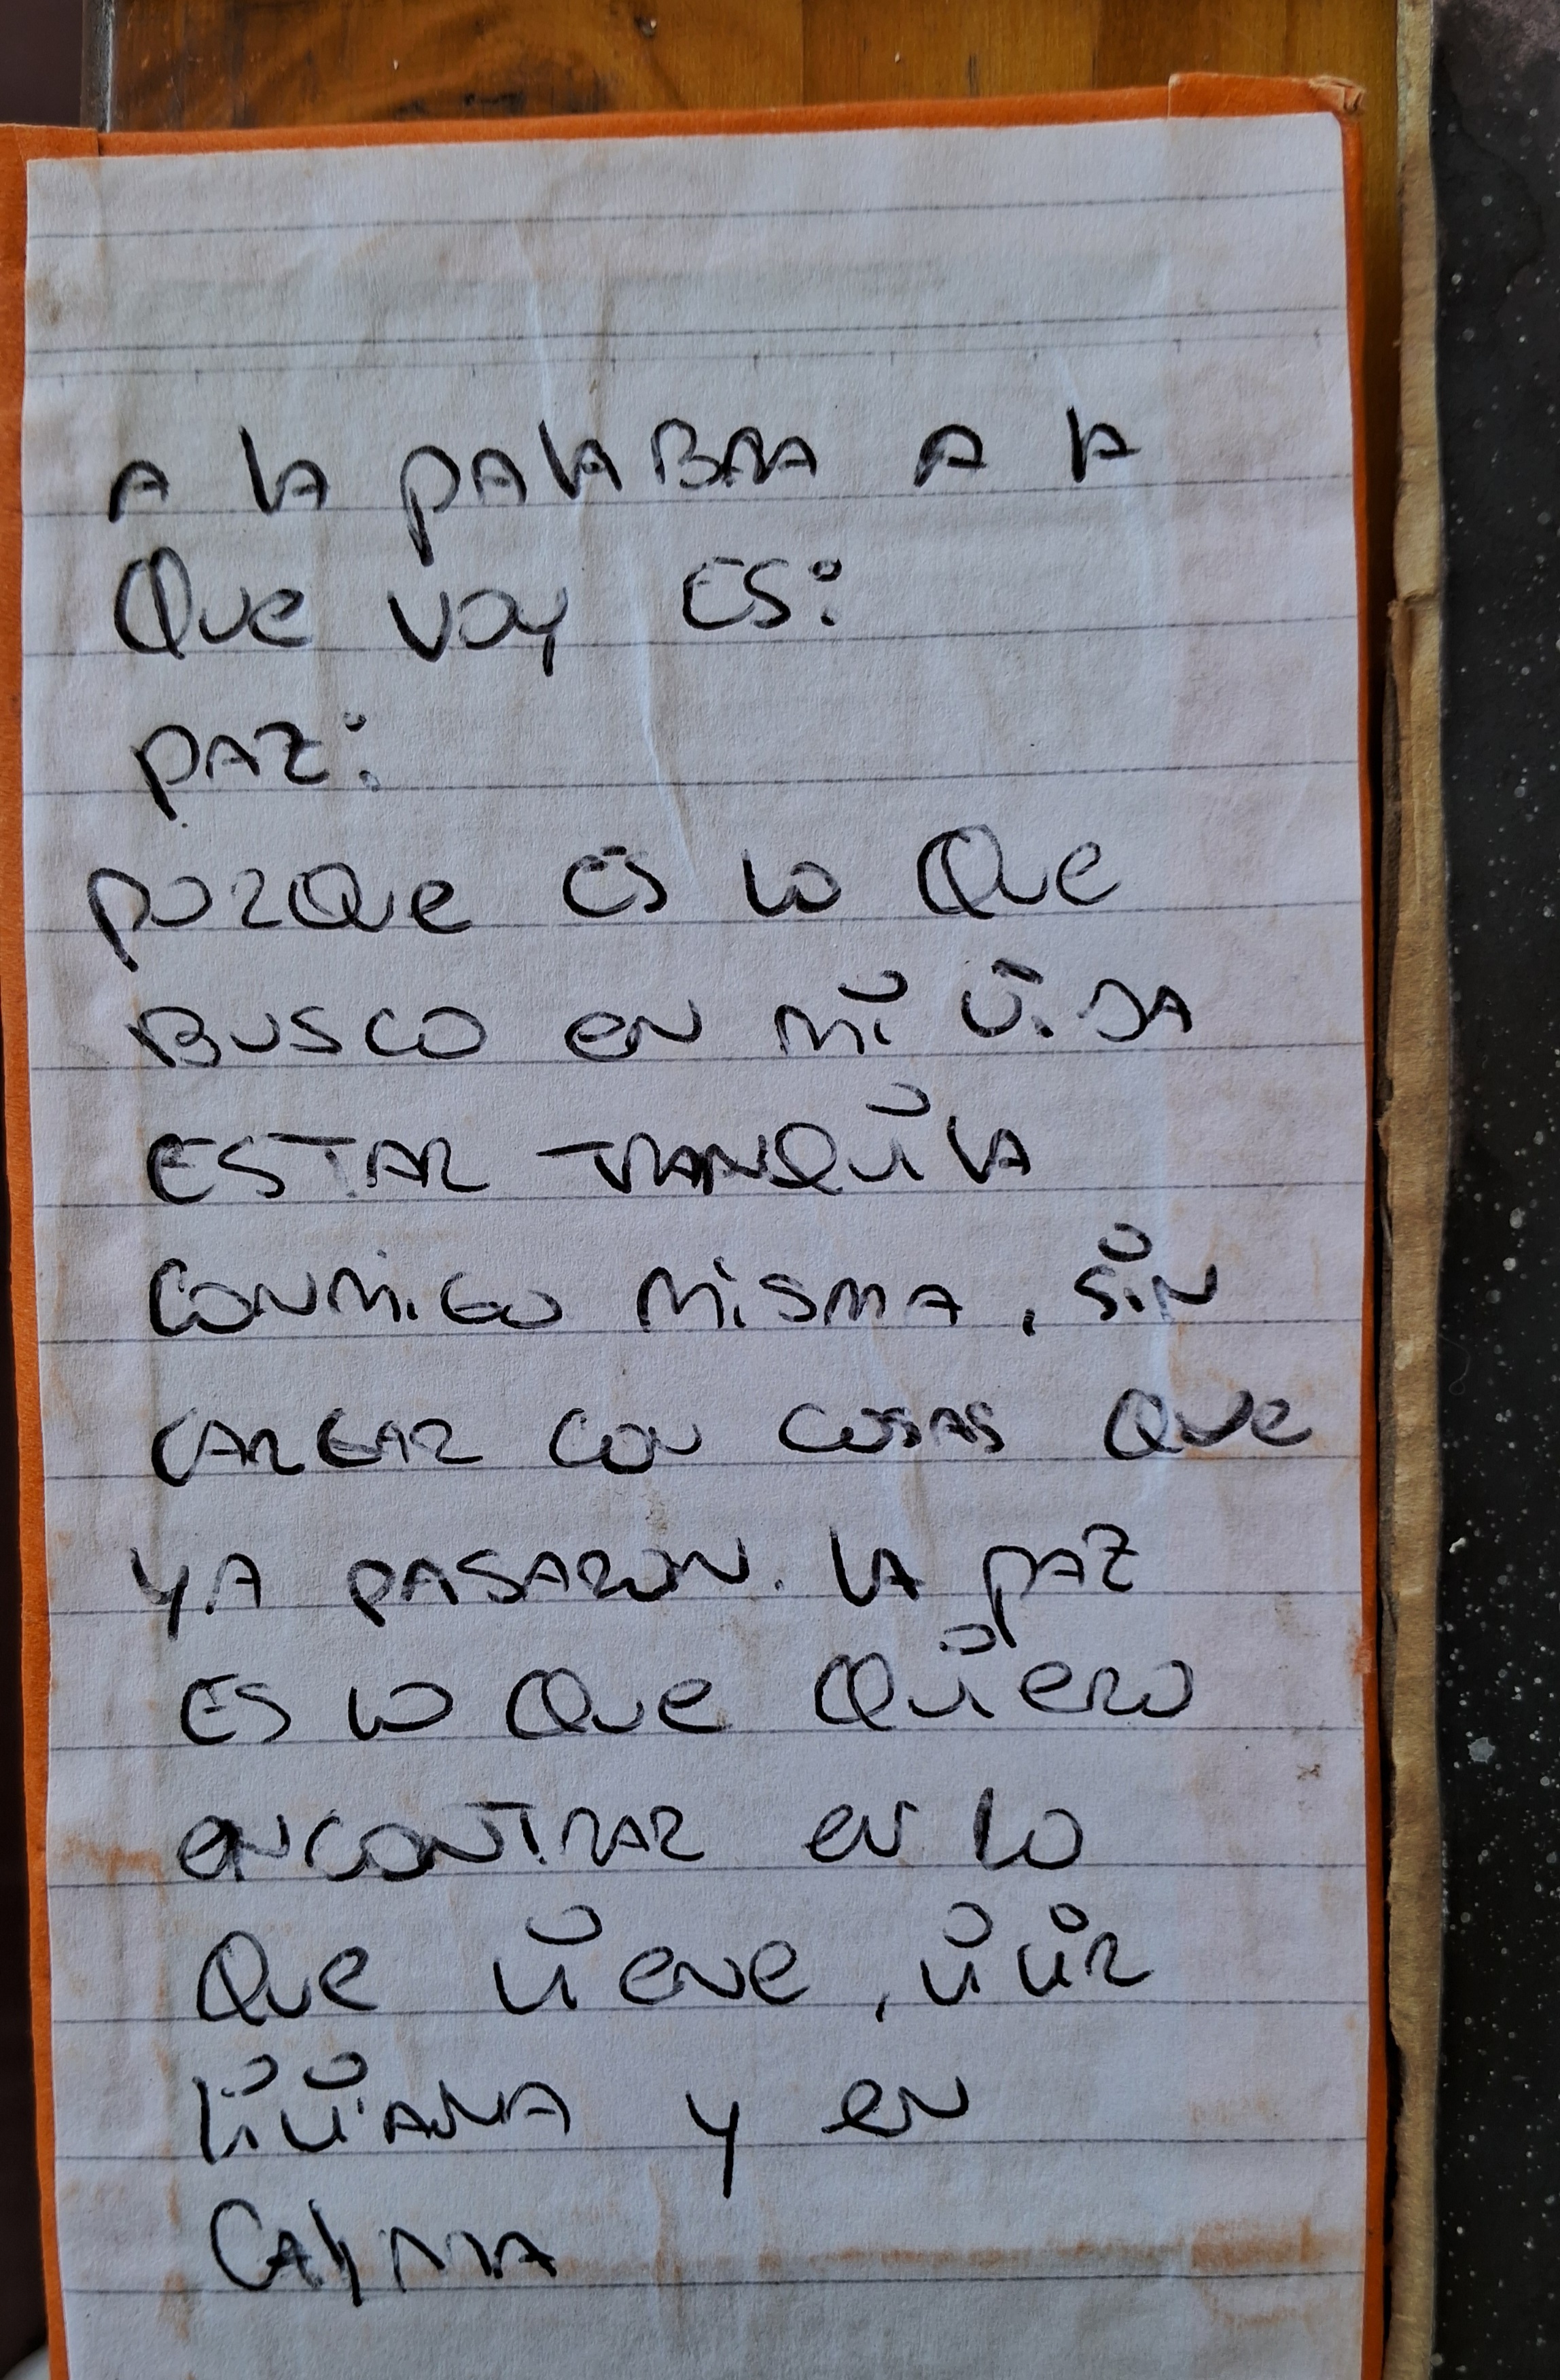 A la palabra a la
Que voy es:
paz:
porque es lo que
Busco en mi vida
estar tranquila
conmigo misma, sin
cargar con cosas que
ya pasaron. la paz
es lo que quiero
encontrar en lo
que viene, vivir
liviana y en
calma